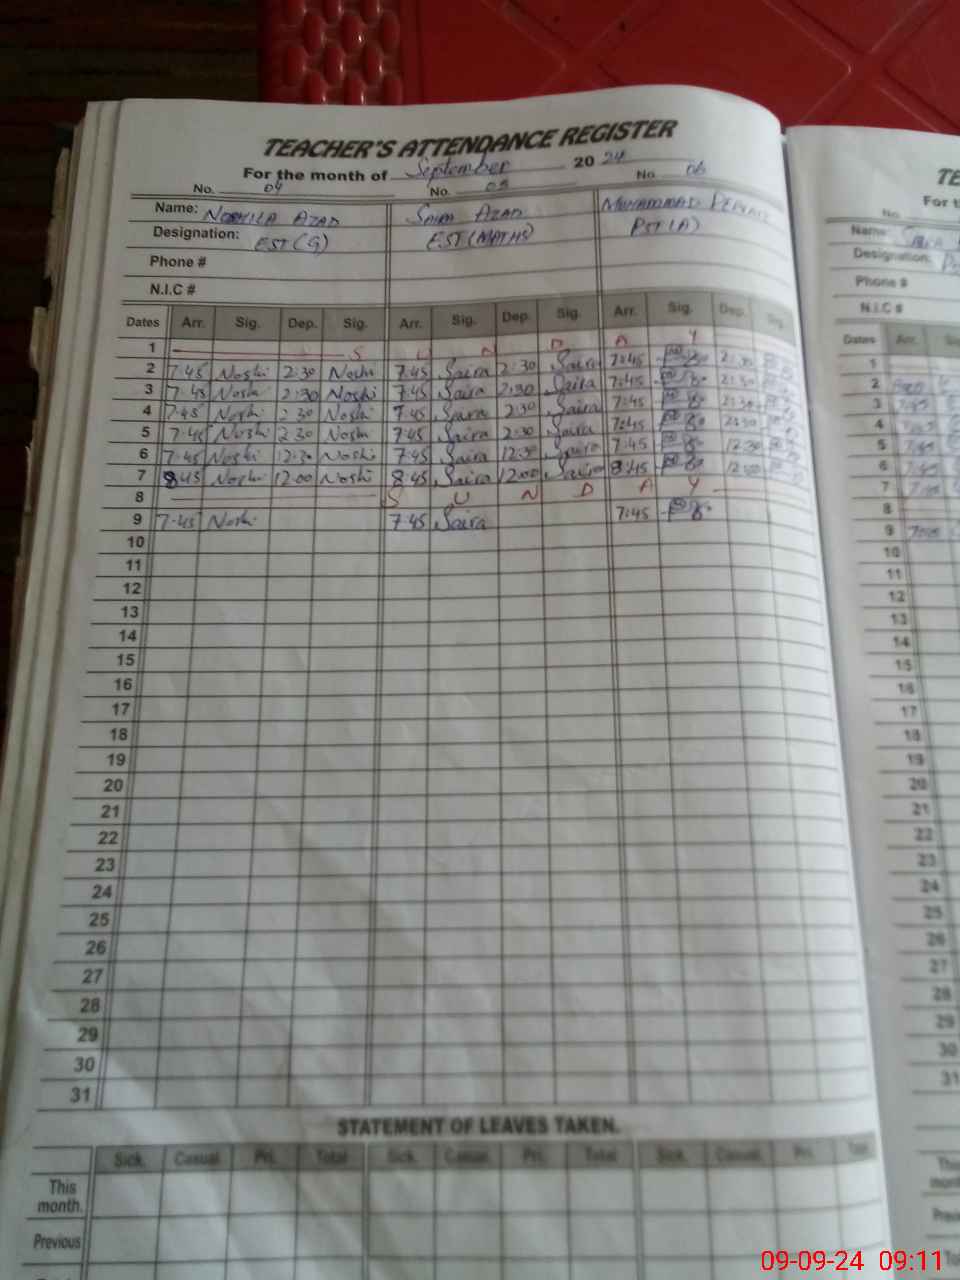 TEACHER'S ATTENDANCE REGISTER
For the month of September 2024
No. 04 No. 05 No. 06
Name: AZAD AZAD MUHAMMAD
Designation: EST(G) EST(MATHS) PST(A)
Phone #
N.I.C #
Dates Arr. Sig. Dep. Sig. Arr. Sig. Dep. Sig. Arr. Sig. Dep. Sig.
1 S U N D A Y
2 7:45 Noshi 2:30 Noshi 7:45 Saira 2:30 Saira 7:45 2:30
3 7:45 Noshi 2:30 Noshi 7:45 Saira 2:30 Saira 7:45 2:30
4 7:45 Noshi 2:30 Noshi 7:45 Saira 2:30 Saira 7:45 2:30
5 7:45 Noshi 2:30 Noshi 7:45 Saira 2:30 Saira 7:45 2:30
6 7:45 Noshi 12:30 Noshi 7:45 Saira 12:30 Saira 7:45 12:30
7 8:45 Noshi 12:00 Noshi 8:45 Saira 12:00 Saira 8:45 12:00
8 S U N D A Y
9 7:45 Noshi 7:45 Saira 7:45
10
11
12
13
14
15
16
17
18
19
20
21
22
23
24
25
26
27
28
29
30
31
STATEMENT OF LEAVES TAKEN.
Sick. Casual. Pri. Total Sick. Casual. Pri. Total Sick. Casual. Pri.
This
month.
Previous
TE
For t
No.
Name:
Designation:
Phone #
N.I.C #
Dates Arr.
1
2
3
4
5
6
7
8
9
10
11
12
13
14
15
16
17
18
19
20
21
22
23
24
25
26
27
28
29
30
31
09-09-24 09:11